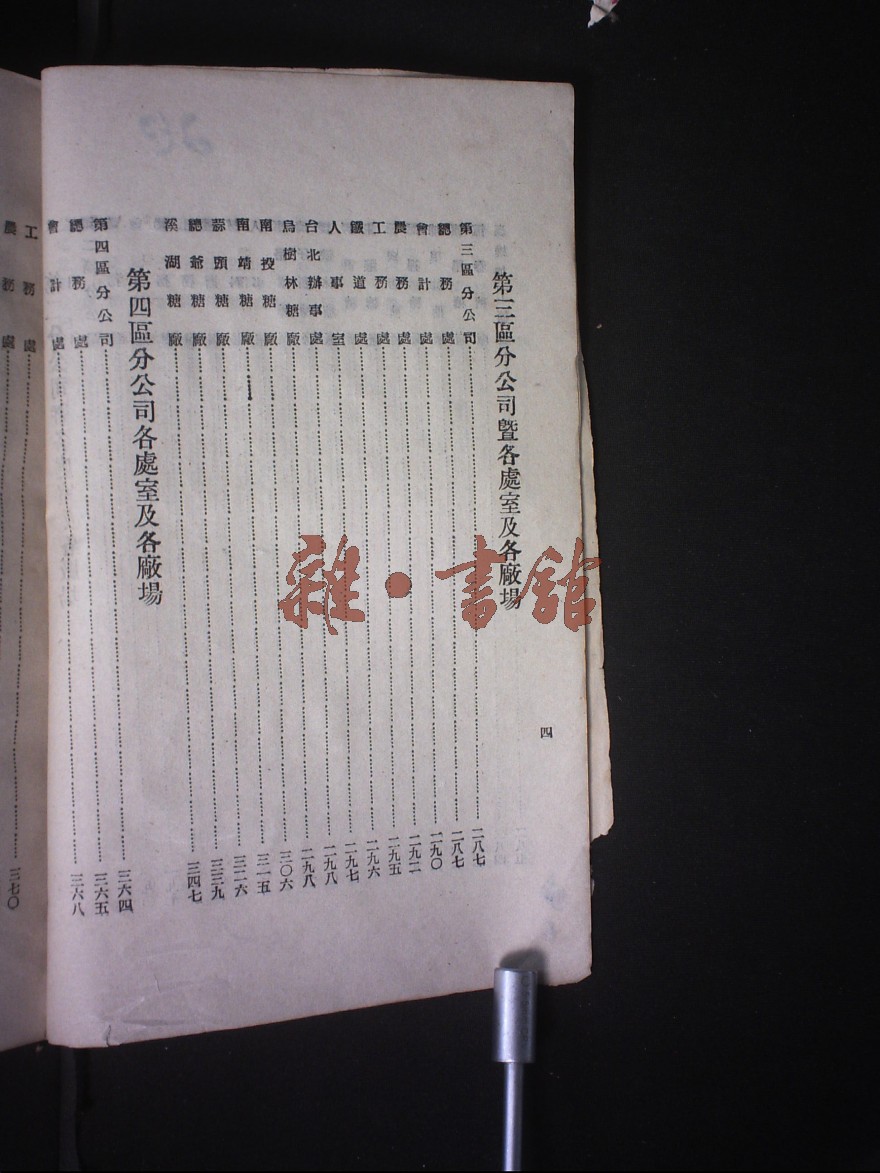 四
第三區分公司曁各處室及各廠場
第三區分公司……二八七
總務處……二八七
會計處……二九〇
農務處……二九二
工務處……二九五
鐵道處……二九六
人事室……二九七
台北辦事處……二九八
烏樹林糖廠……二九八
南投糖廠……三〇六
南靖糖廠……三一五
蒜頭糖廠……三二六
總爺糖廠……三三九
溪湖糖廠……三四七
第四區分公司各處室及各廠場
第四區分公司……三六四
總務處……三六五
會計處……三六八
工務處……三七〇
農務處……
雜·書館